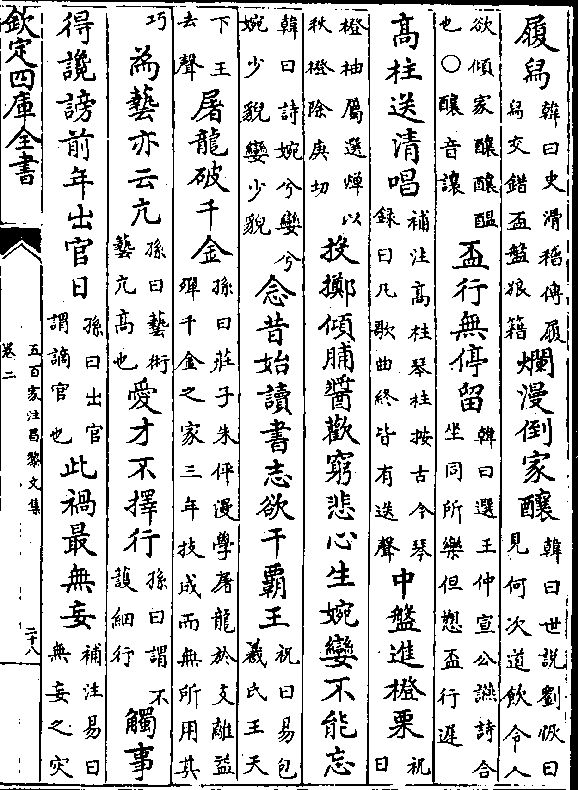 履舄韓曰史滑稽傳履舄交錯盃盤狼籍爛漫倒家釀韓曰世說劉惔曰見何次道飲令人
欲傾家釀釀醞也○釀音讓盃行無停留韓曰選王仲宣公讌詩合坐同所樂但愬盃行遲
高柱送清唱補注高柱琴柱按古今琴録曰凡歌曲終皆有送聲中盤進橙栗祝曰
橙柚屬選燀以秋橙除庚切投擲傾脯醬歡窮悲心生婉孌不能忘
韓曰詩婉兮孌兮婉少貌孌少貌念昔始讀書志欲干霸王祝曰易包羲氏王天
下王去聲屠龍破千金孫曰莊子朱伻漫學屠龍於支離益殫千金之家三年技成而無所用其
巧為藝亦云亢孫曰藝術藝亢高也愛才不擇行孫曰謂不護細行觸事
得讒謗前年出官日孫曰出官謂謫官也此禍最無妄補注易曰無妄之災
欽定四庫全書
五百家注昌黎文集
卷二
二十八